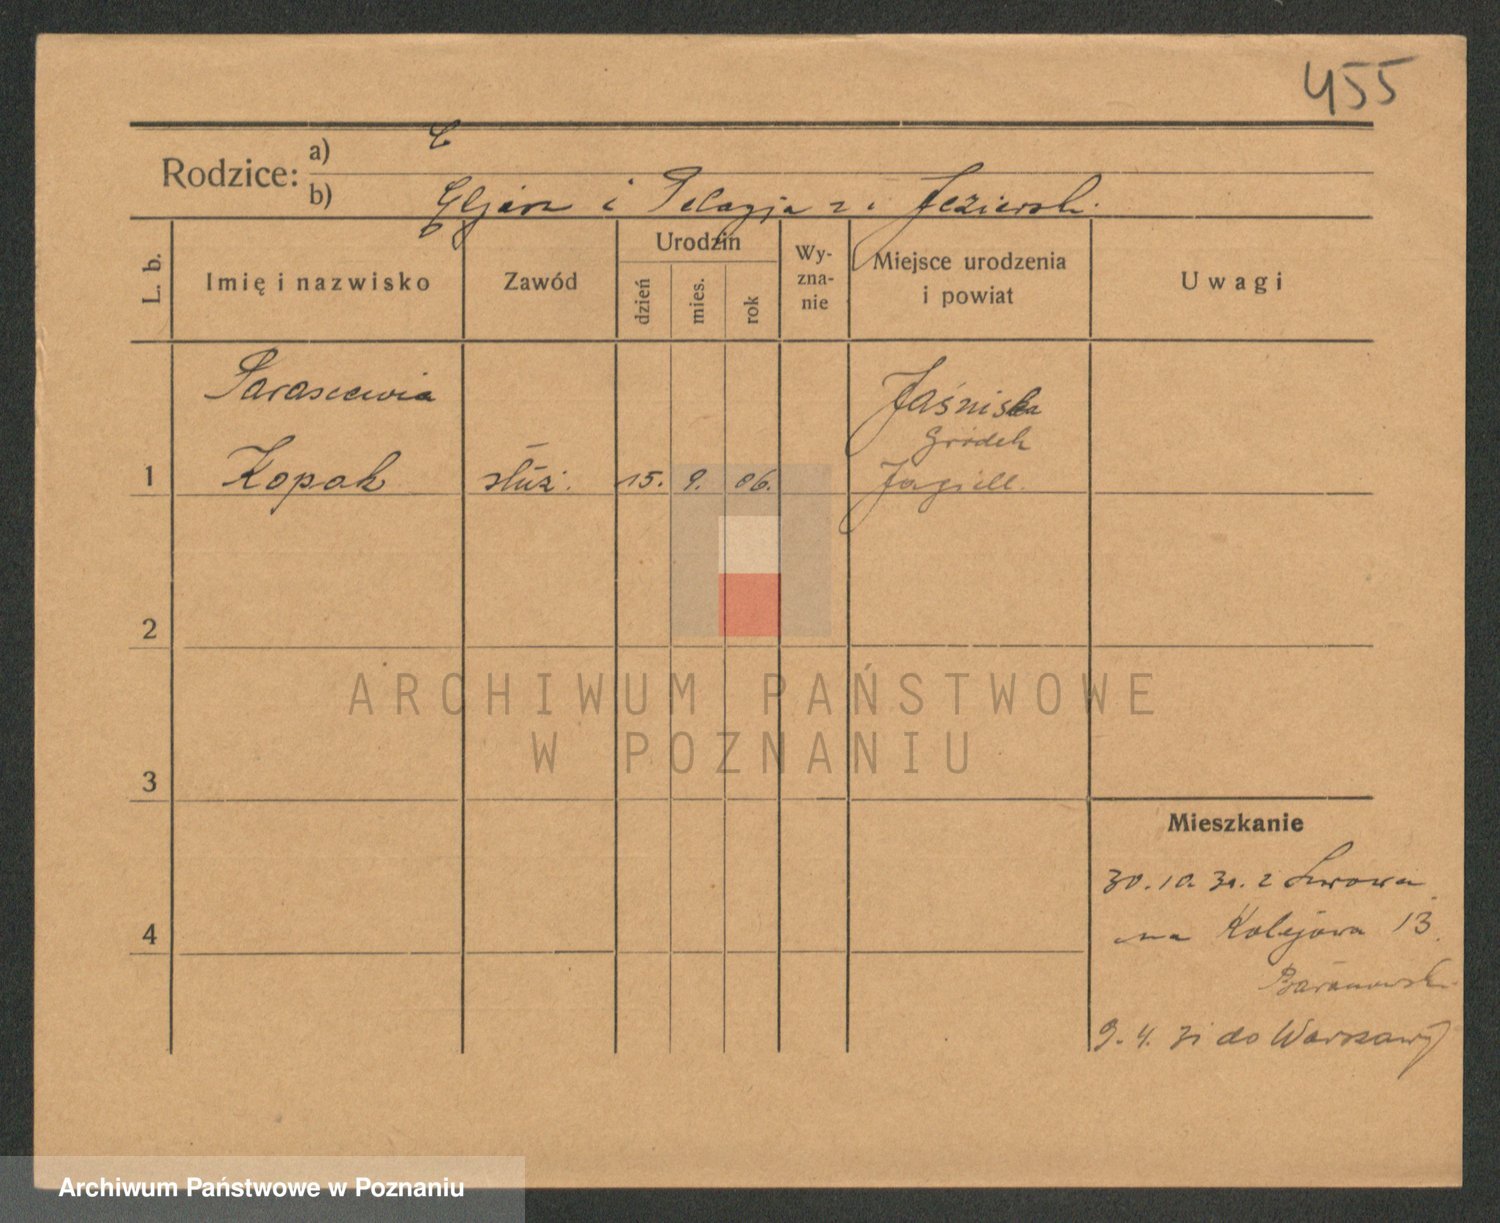 455
Rodzice:
a)
b) Eljasz i Pelagja z. Jeziersk.
L. b.
Imię i nazwisko
Zawód
Urodzin
dzień
mies.
rok
Wy-
zna-
nie
Miejsce urodzenia
i powiat
Uwagi
Parascewia
Jaśniska
Gródek
1 Kopak służ. 15. 9. 06. Jagiell.
2
ARCHIWUM PAŃSTWOWE
W POZNANIU
3
Mieszkanie
30. 10. 30. z Lwowa
na Kolejowa 13.
4
Baranowsk.
9. 4. 31 do Warszawy
Archiwum Państwowe w Poznaniu